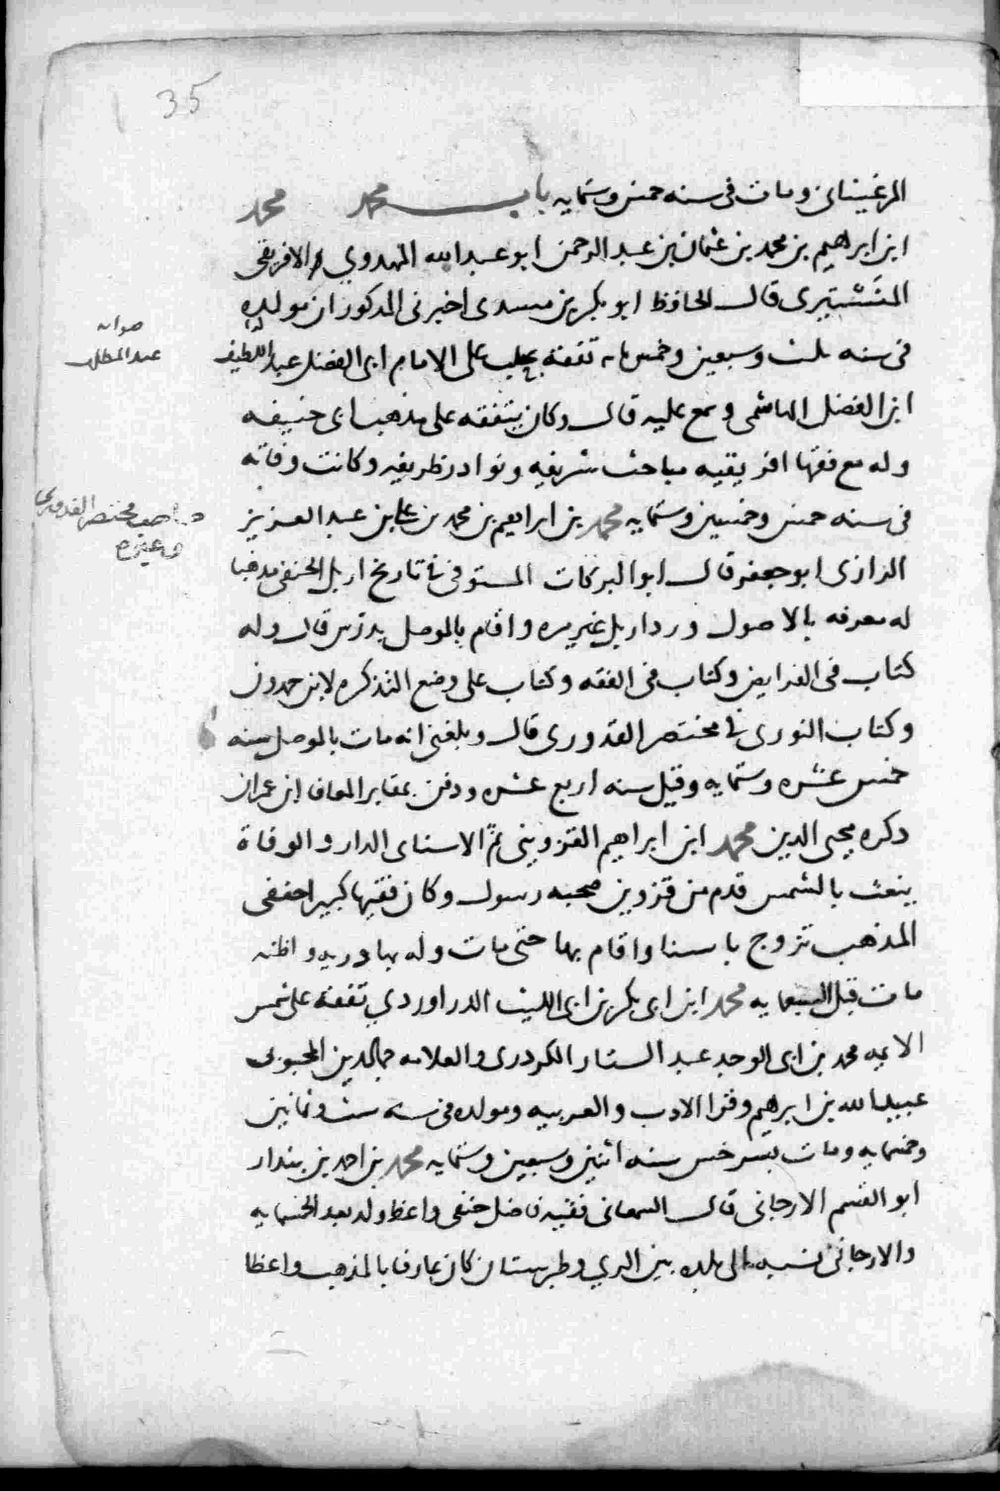 35
المرغينانى ومات فى سنه خمس وستمايه باب محمد محمد
ابن ابراهيم بن محمد بن عثمان بن عبد الرحمن ابو عبد الله المهدوي الافريقى
المنشتيرى قال الحافظ ابو بكر بن مسدى اخبرنى المذكور ان مولده
فى سنه ثلث وسبعين وخمس مايه تفقه بحلب على الامام ابى الفضل عبد اللطيف
صوابه
عبد المطلب
ابن الفضل الهاشمى وسمع عليه قال وكان يتفقه على مذهب ابى حنيفه
وله مع فقها افريقيه مباحث شريفه ونوادر ظريفه وكانت وفاته
فى سنه خمس وخمسين وستمايه محمد بن ابراهيم بن محمد بن على بن عبد العزيز
مختصر القدورى
وغيره
الرازى ابو جعفر قال ابو البركات المستوفى فى تاريخ اربل الحنفى مذهبا
له معرفه بالاصول ورد اربل غير مره واقام بالموصل يدرس قال وله
كتاب فى الفرايض وكتاب فى الفقه وكتاب على وضع التذكره لابن حمدون
وكتاب النورى فى مختصر القدورى قال وبلغنى انه مات بالموصل سنه
خمس عشره وستمايه وقيل سنه اربع عشره ودفن بمقابر المعافا ابن عمران
ذكره محيى الدين محمد ابن ابراهيم القزوينى ثم الاسناى الدار والوفاة
ينعت بالشمس قدم من قزوين صحبه رسول وكان فقيها كبيرا حنفى
المذهب تزوج باسنا واقام بها حتى مات وله بها ذريه واظنه
مات قبل السبعمايه محمد ابن ابى بكر بن ابى الليث الدراوردي تفقه على شمس
الايمه محمد بن ابى الوحيد عبد الستار الكردرى والعلامه جمال الدين المحبوبى
عبيد الله بن ابرهيم وقرا الادب والعربيه ومولده فى سنه ست وثمانين
وخمسمايه ومات بسرخس سنه اثنين وسبعين وستمايه محمد بن احمد بن بندار
ابو القسم الارجانى قال السمعانى فقيه فاضل حنفى واعظ ولد بعد الخمسمايه
والارجانى نسبه الى بلده بين الري وطبرستان كان عارفا بالمذهب واعظا